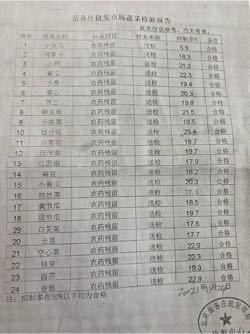 岳各庄批发市场蔬菜检验报告
此表仅供参考，当天有效。
编号 蔬菜名称 检测项目 样本来源 抑制率% 备注
1 农药残留 送检 5.9 合格
2 农药残留 送检 19.3 合格
3 农药残留 送检 21.2 合格
4 黄瓜 农药残留 送检 22.3 合格
5 小葱 农药残留 送检 19.4 合格
6 菜心 农药残留 送检 20.3 合格
7 芥兰 农药残留 送检 21.8 合格
8 鲜玉米 农药残留 送检 21.5 合格
9 农药残留 送检 18.5 合格
10 西兰花 农药残留 送检 25.4 合格
11 白菜花 农药残留 送检 18.7 合格
12 农药残留 送检 19.9 合格
13 红面椒 农药残留 送检 17.7 合格
14 豌豆 农药残留 送检 16.2 合格
15 小黄瓜 农药残留 送检 20.2 合格
16 娃娃菜 农药残留 送检 19.9 合格
17 黄节瓜 农药残留 送检 16.8 合格
18 绿节瓜 农药残留 送检 18.2 合格
29 白苋菜 农药残留 送检 20.9 合格
20 土豆 农药残留 送检 20.4 合格
21 空心菜 农药残留 送检 22.9 合格
22 银芽 农药残留 送检 22.9 合格
23 西芹 农药残留 送检 22.9 合格
24 香葱 农药残留 送检
注：抑制率在50%以下均为合格